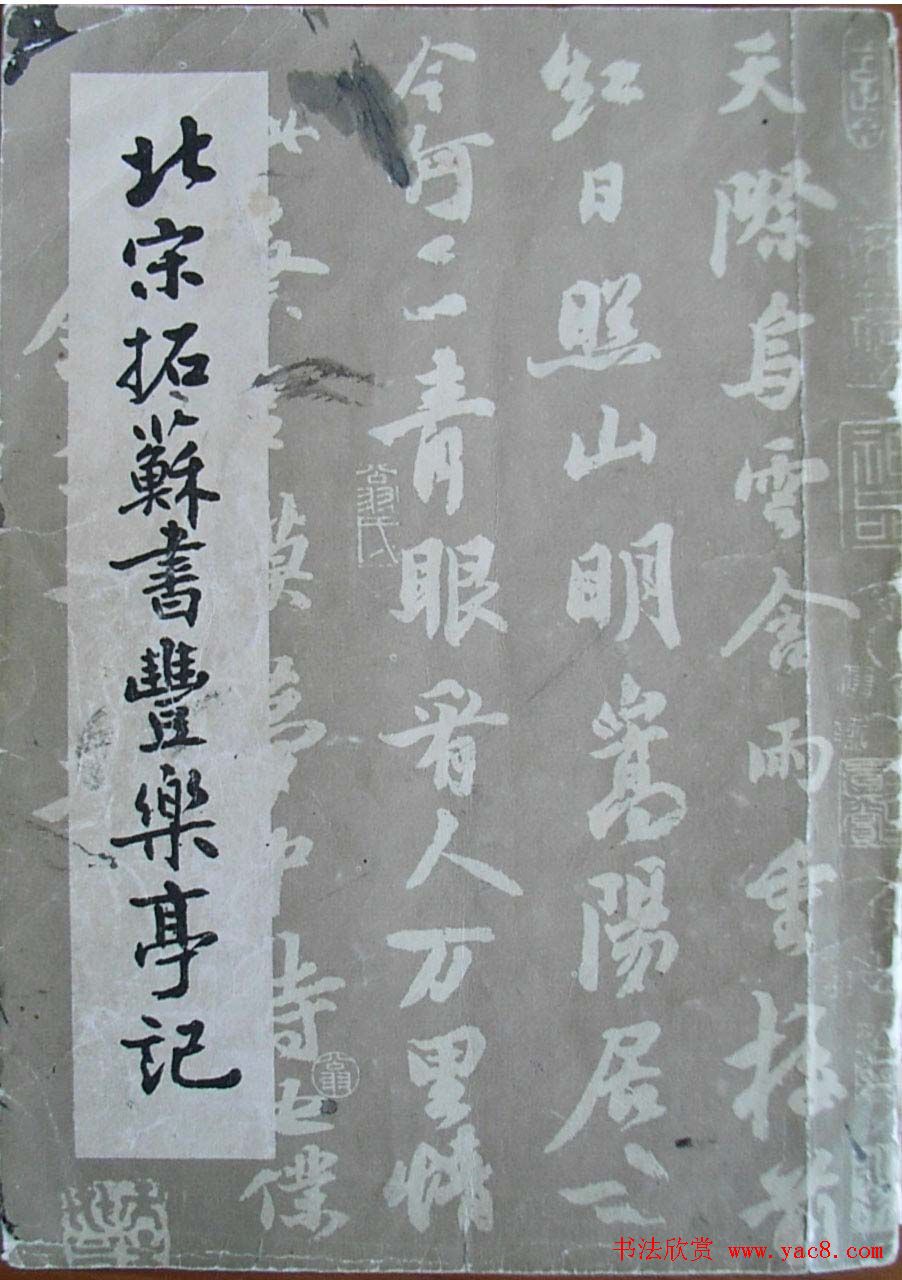 北宋拓蘇書豐樂亭記
天際烏雲含雨重樓前
紅日照山明嵩陽居士
今何在青眼看人万里情
謨夢中詩也僕
书法欣赏 www.yac8.com